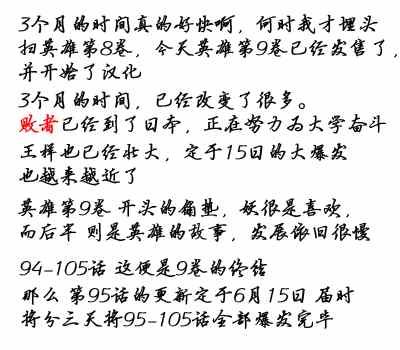 3个月的时间真的好快啊，何时我才埋头
扫英雄第8卷，今天英雄第9卷已经发售了，
并开始了汉化
3个月的时间，已经改变了很多。
败者已经到了日本，正在努力为大学奋斗
王样也已经壮大，定于15日的大爆发
也越来越近了
英雄第9卷 开头的铺垫，妖很是喜欢，
而后半 则是英雄的故事，发展依旧很慢
94-105话 这便是9卷的终结
那么 第95话的更新定于6月15日 届时
将分三天将95-105话全部爆发完毕